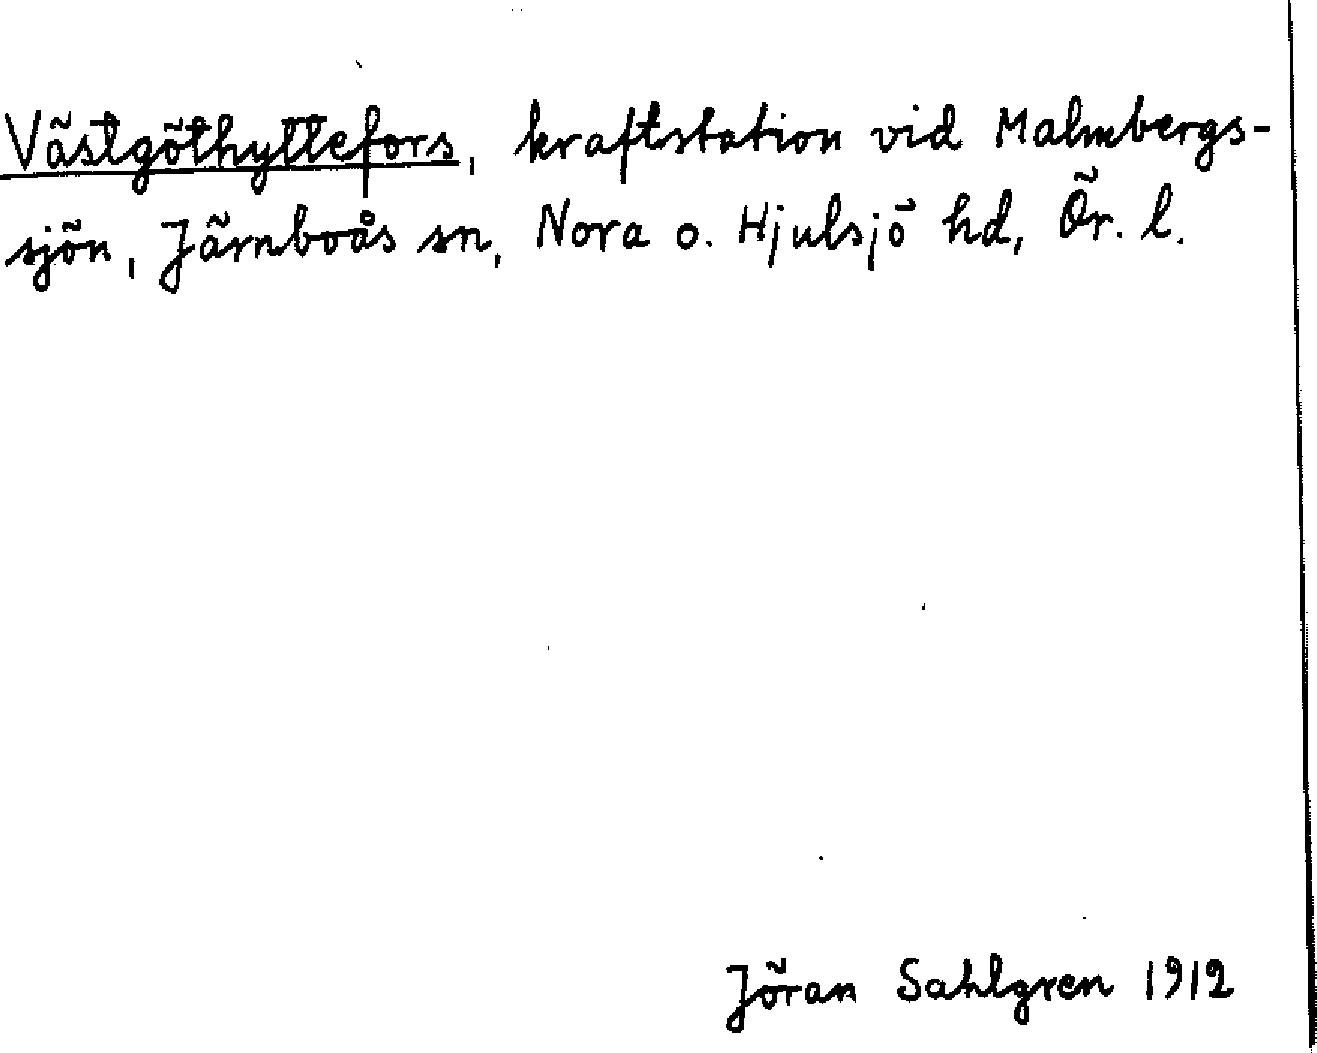 Västgöthyttefors, kraftstation vid Malmbergs-
sjön, Järnboås sn, Nora o. Hjulsjö hd, Ör. l.
Jöran Sahlgren 1912